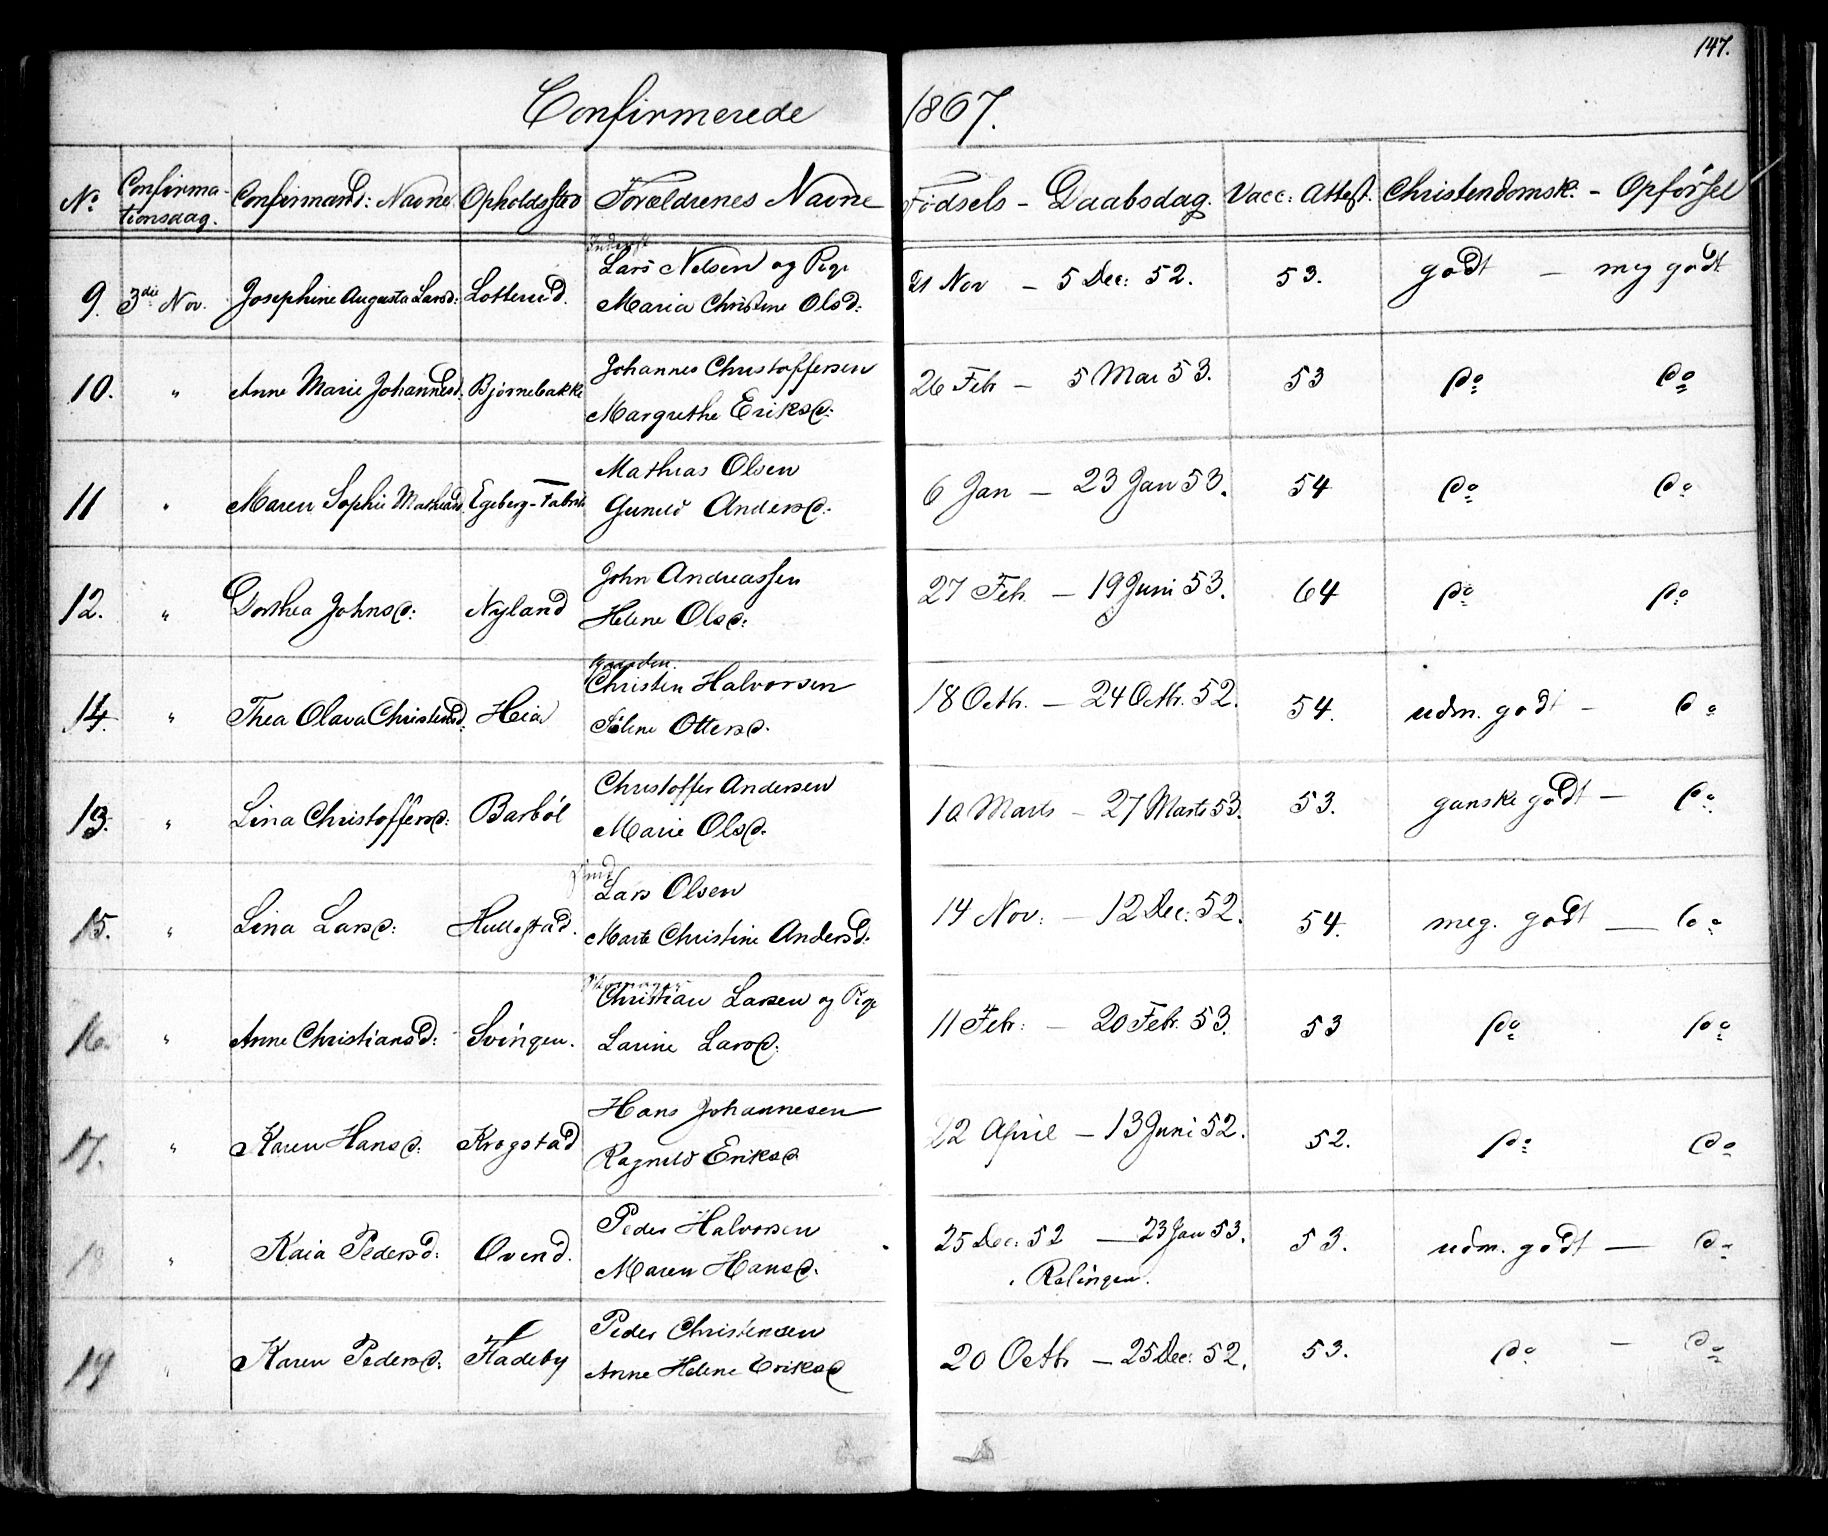 147.
Confirmerede 1867.
No Confirmationsdag. Confirmand: Navne Opholdssted Forældrenes Navne Fødsels - Daabsdag. Vacc: Attest. Christendomsk. - Opførsel
Inderst
Lars Nelsen og Pige
9. 3die Nov. Josephine Augusta Larsd: Lotterud. Maria Christine Olsd: 21 Nov - 5 Dec: 52. 53. godt - meg godt
Johannes Christoffersen
10. " Anne Marie Johannesd. Bjørnebakke Margrethe Eriksd: 26 Febr - 5 Mar 53. 53 do do
Mathias Olsen
11 " Maren Sophie Mathiasd. Egeberg-Fabrik Gunild Andersd: 6 Jan - 23 Jan 53. 54 do do
John Andreassen
12. " Dorthea Johnsd: Nyland Helene Olsd: 27 Feb. - 19 Juni 53. 64 do do
Christen Halvorsen
14. " Thea Olava Christensd. Heia Søline Ottersd. 18 Octbr. - 24 Octbr. 52. 54. udm. godt - do
Christoffer Andersen
13. " Lina Christoffersd: Barbøl Marie Olsd. 10 Marts - 27 Marts 53. 53. ganske godt - do
Lars Olsen
15. " Lina Larsd: Hullestad. Marte Christine Andersd. 14 Nov: - 12 Dec: 52. 54. meg. godt - do
Christian Larsen og Pige
16. " Anne Christiansd: Svingen. Larine Larsd. 11 Febr: - 20 Febr. 53. 53 do do
Hans Johannesen
17. " Karen Hansd: Krogstad Ragnild Eriksd 22 April - 13 Juni 52. 52. do do
Peder Halvorsen
18 " Kaia Pedersd: Ovend. Maren Hansd. 25 Dec: 52 - 23 Jan 53. 53. udm. godt - do
i Rælingen.
Peder Christensen
19 " Karen Pedersd: Fladeby Anne Helene Eriksd 20 Octbr - 25 Dec: 52. 53. do - do